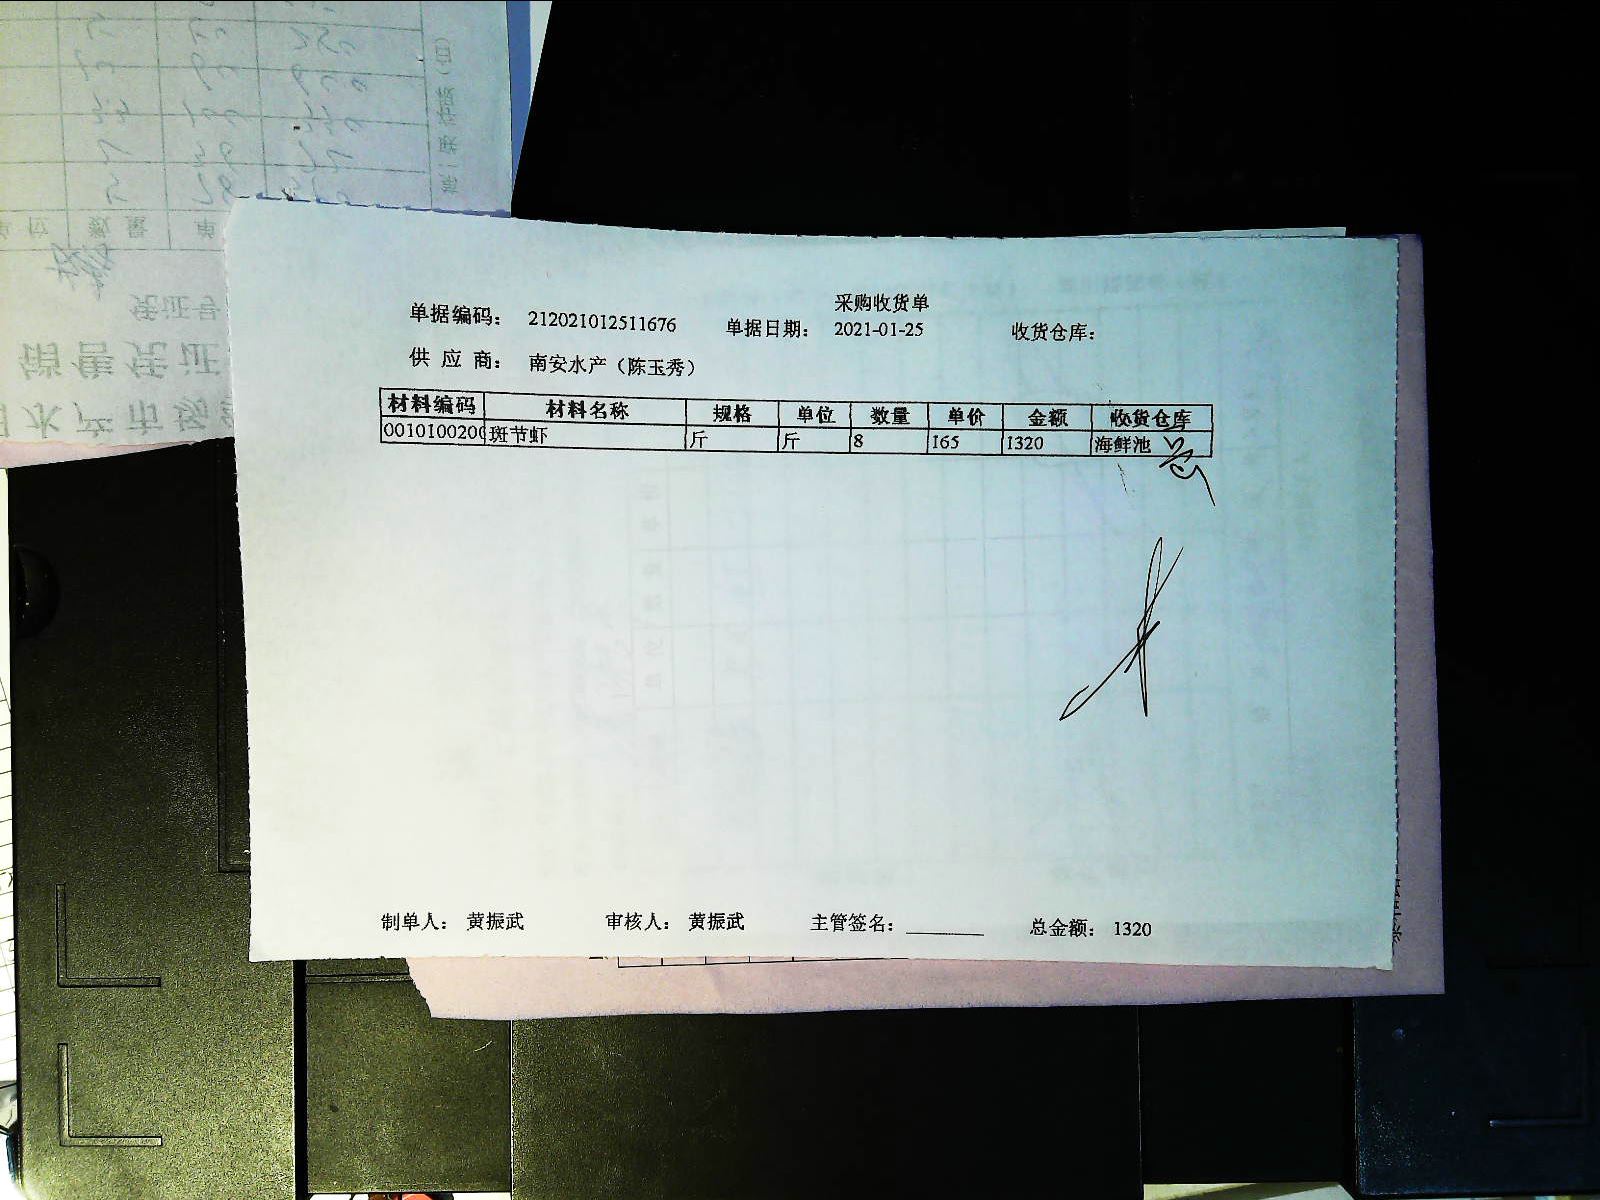 采购收货单
单据编码： 212021012511676 单据日期： 2021-01-25 收货仓库：
供 应 商： 南安水产（陈玉秀）
材料编码 材料名称 规格 单位 数量 单价 金额 收货仓库
0010100200 斑节虾 斤 斤 8 165 1320 海鲜池
制单人： 黄振武 审核人： 黄振武 主管签名： 总金额： 1320
数 量
凭证号
销售凭证
水产市场